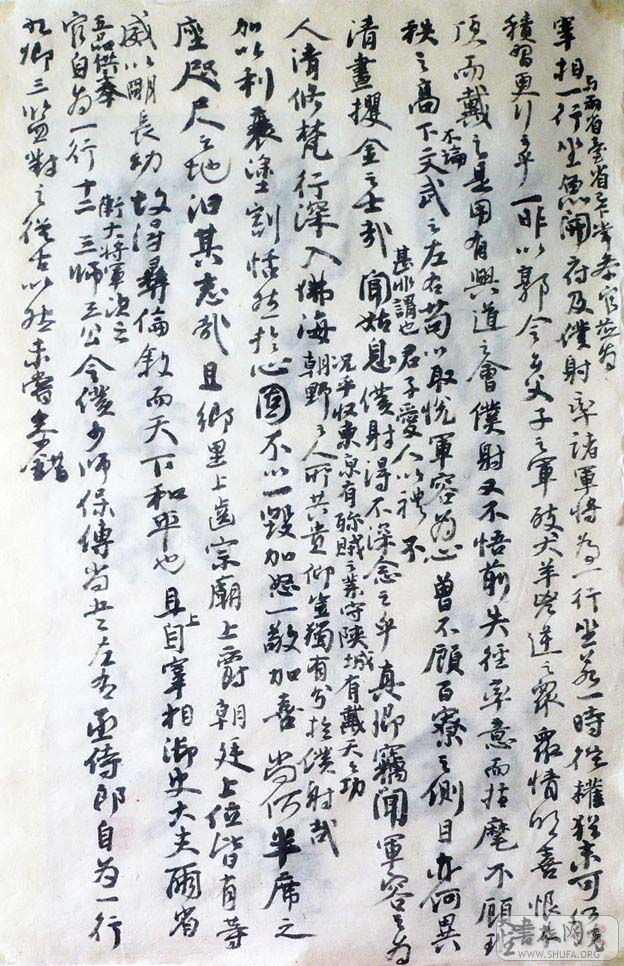 與兩省臺省已下常參官並為
宰相一行坐魚開府及僕射率諸軍將為一行坐若一時從權猶未可何況
積習更行之乎一昨以郭令公父子之軍破犬羊兇逆之眾眾情欣喜恨不
頂而戴之是用有興道之會僕射又不悟前失徑率意而指麾不顧班
秩之高下不論文武之左右苟以取悅軍容為心曾不顧百寮之側目亦何異
清晝攫金之士哉甚非謂也君子愛人以禮不聞姑息僕射得不深念之乎真卿竊聞軍容之為
人清修梵行深入佛海況乎收東京有殄賊之業守陝城有戴天之功朝野之人所共貴仰豈獨有分於僕射哉
加以利衰塗割恬然於心固不以一毀加怒一敬加喜尚何半席之
座咫尺之地汩其志哉且鄉里上齒宗廟上爵朝廷上位皆有等
威以明長幼故得彝倫敘而天下和平也且上自宰相御史大夫兩省
五品供奉
官自為一行十二衛大將軍次之三師三公令僕少師保傅尚書左右丞侍郎自為一行
九卿三監對之從古以然未嘗參錯
書法网
WWW.SHUFA.ORG